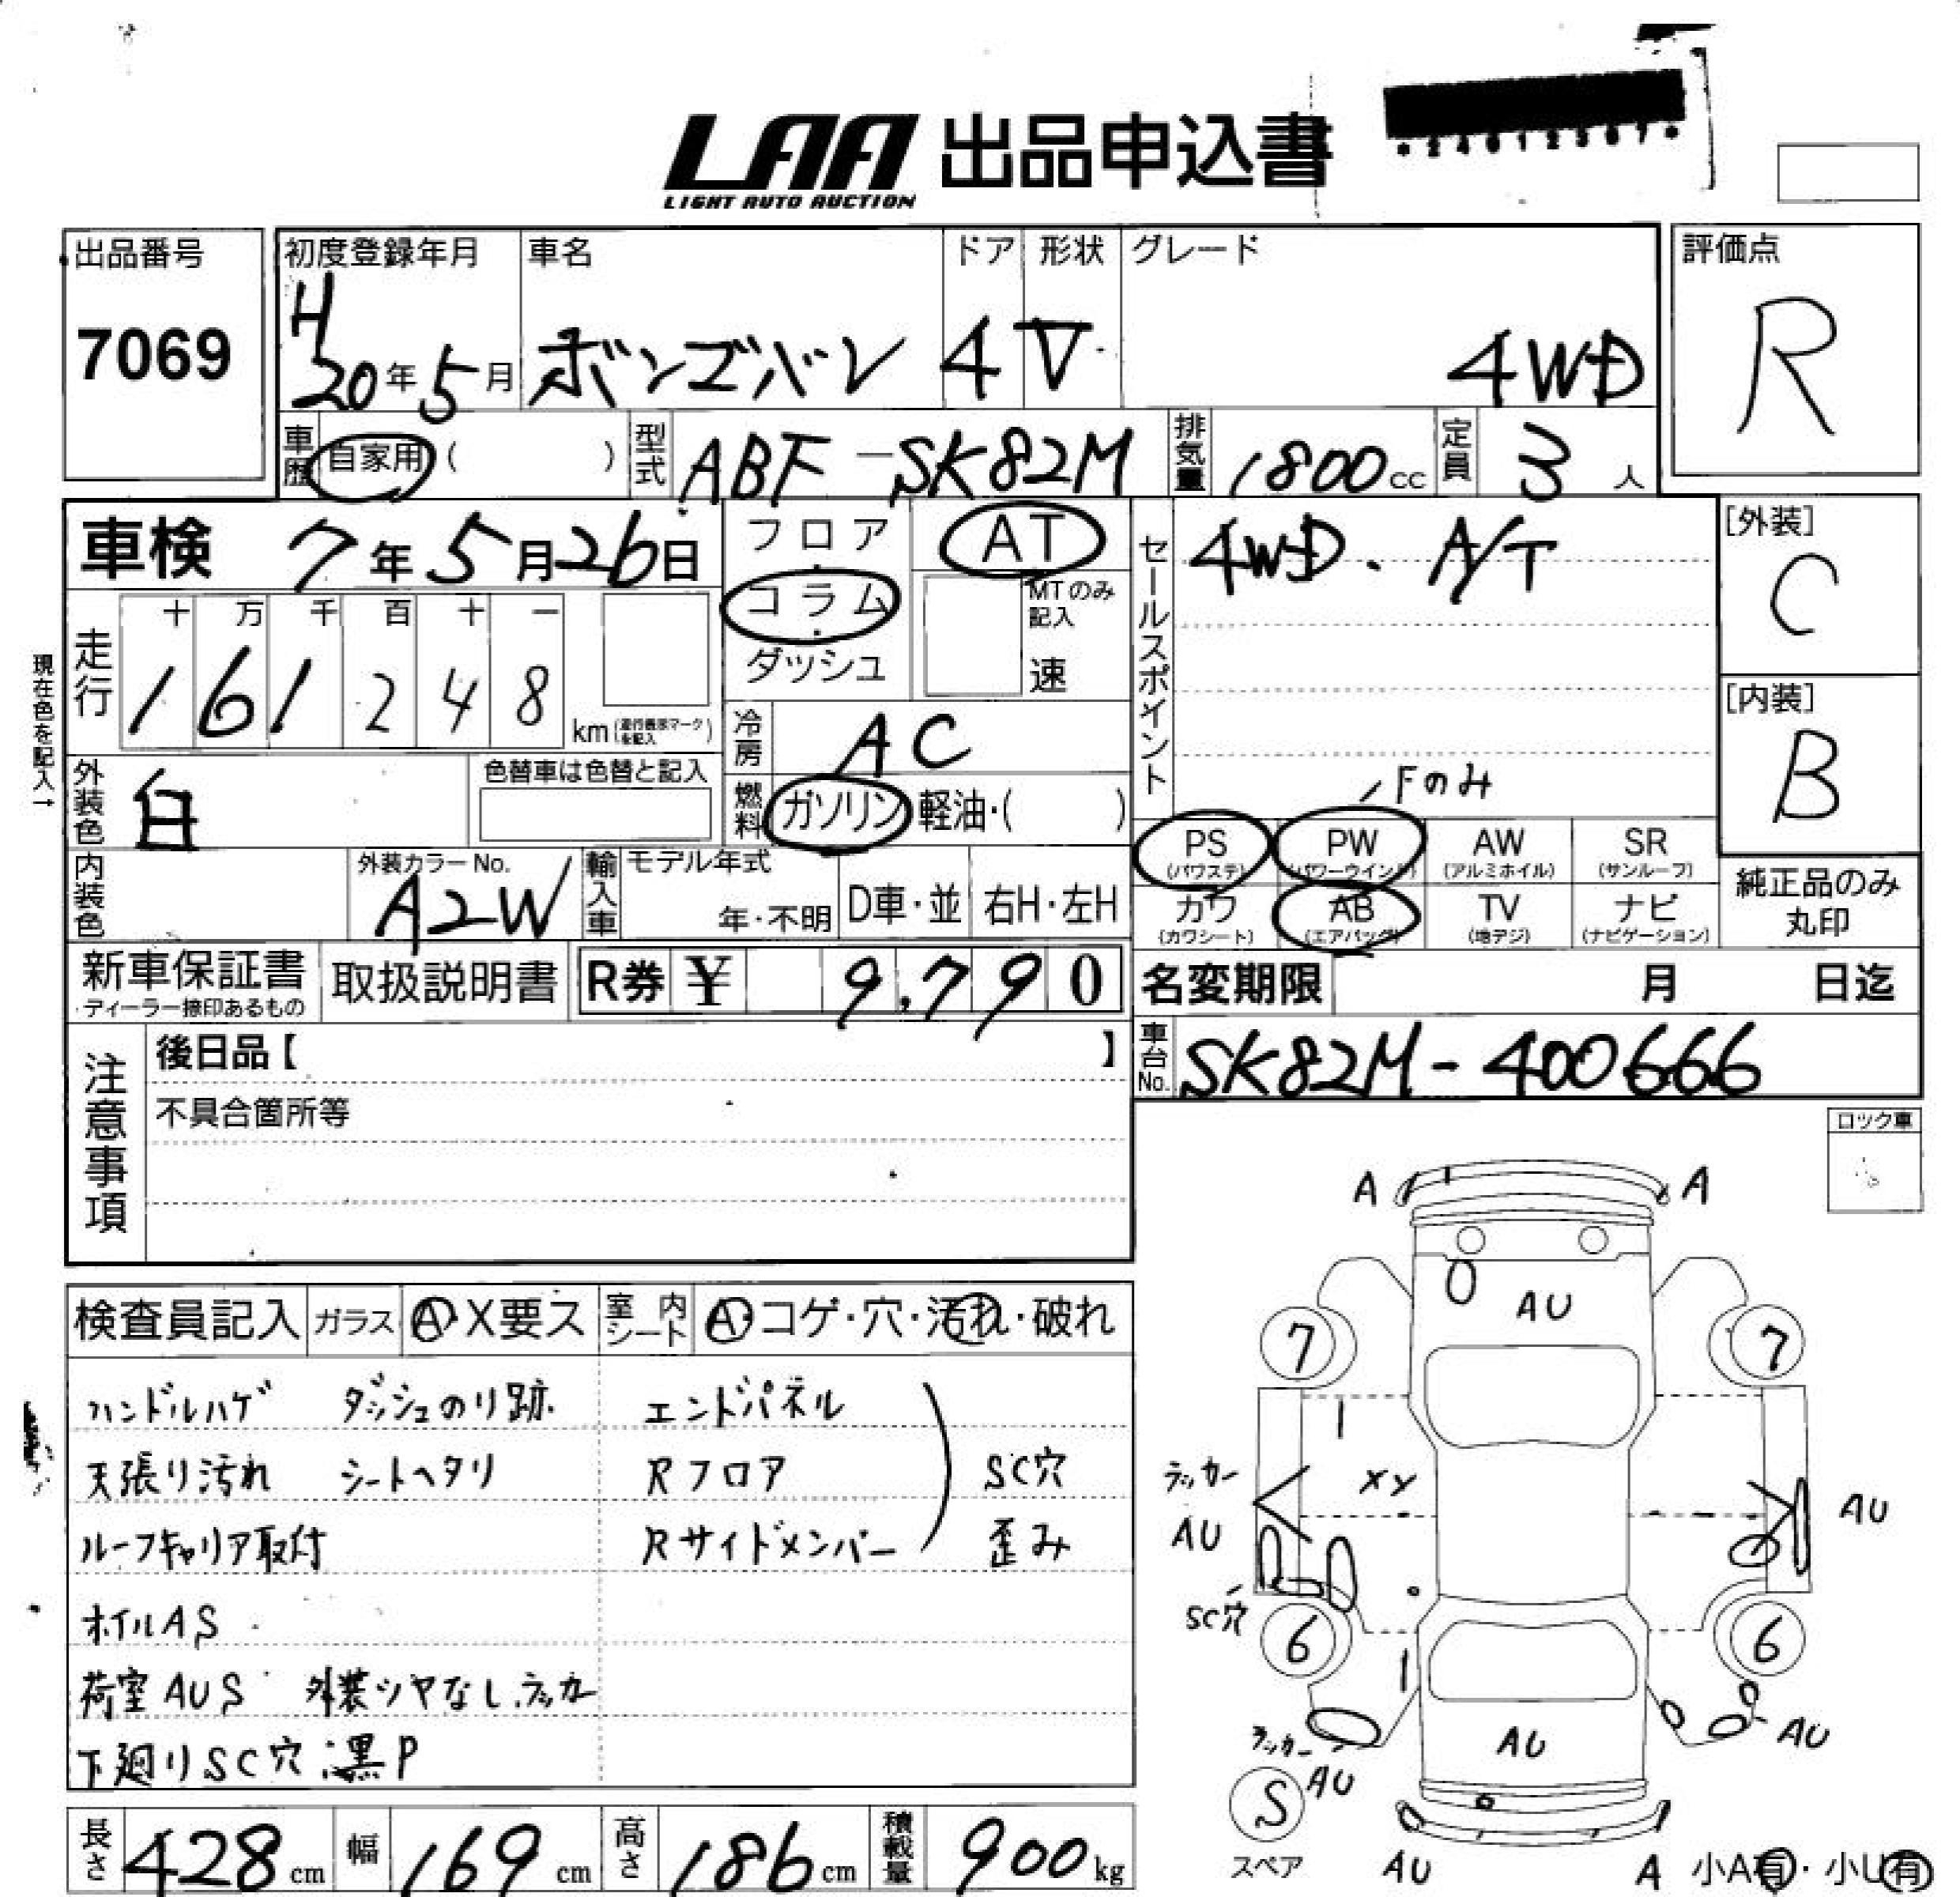 LAA 出品申込書
LIGHT AUTO AUCTION
*24012307*
出品番号 初度登録年月 車名 ドア 形状 グレード 評価点
7069 H20年5月 ボンゴバン 4 V 4WD R
車歴 自家用 ( ) 型式 ABF-SK82M 排気量 1800cc 定員 3人
車検 7年5月26日 フロア AT セールスポイント 4WD. A/T [外装]
C
現在色を記入→
走行 十 万 千 百 十 一 コラム MTのみ記入
161248 km (走行表示マークを記入) ダッシュ 速 [内装]
冷房 AC B
外装色 白 色替車は色替と記入 燃料 ガソリン 軽油・( ) Fのみ
PS (パワステ) PW (パワーウインド) AW (アルミホイル) SR (サンルーフ)
内装色 外装カラーNo. A2W 輸入車 モデル年式 年・不明 D車・並 右H・左H カワ (カワシート) AB (エアバッグ) TV (地デジ) ナビ (ナビゲーション) 純正品のみ丸印
新車保証書 ・ディーラー捺印あるもの 取扱説明書 R券 ¥ 9,790 名変期限 月 日迄
注意事項 後日品【 】 車台No. SK82M-400666
不具合箇所等 ロック車
検査員記入 ガラス A・X要ス 室内シート A・コゲ・穴・汚れ・破れ
ハンドルハゲ ダッシュのり跡 エンドパネル
天張り汚れ シートヘタリ Rフロア SC穴
ルーフキャリア取付 Rサイドメンバー 歪み
ホイルAS
荷室AUS 外装ツヤなし.ラッカー
下廻りSC穴 黒P
A A
AU
7 7
ラッカー XY
AU AU
SC穴
6 6
ラッカー AU AU
AU
S
スペア AU A 小A有・小U有
長さ 428cm 幅 169cm 高さ 186cm 積載量 900kg